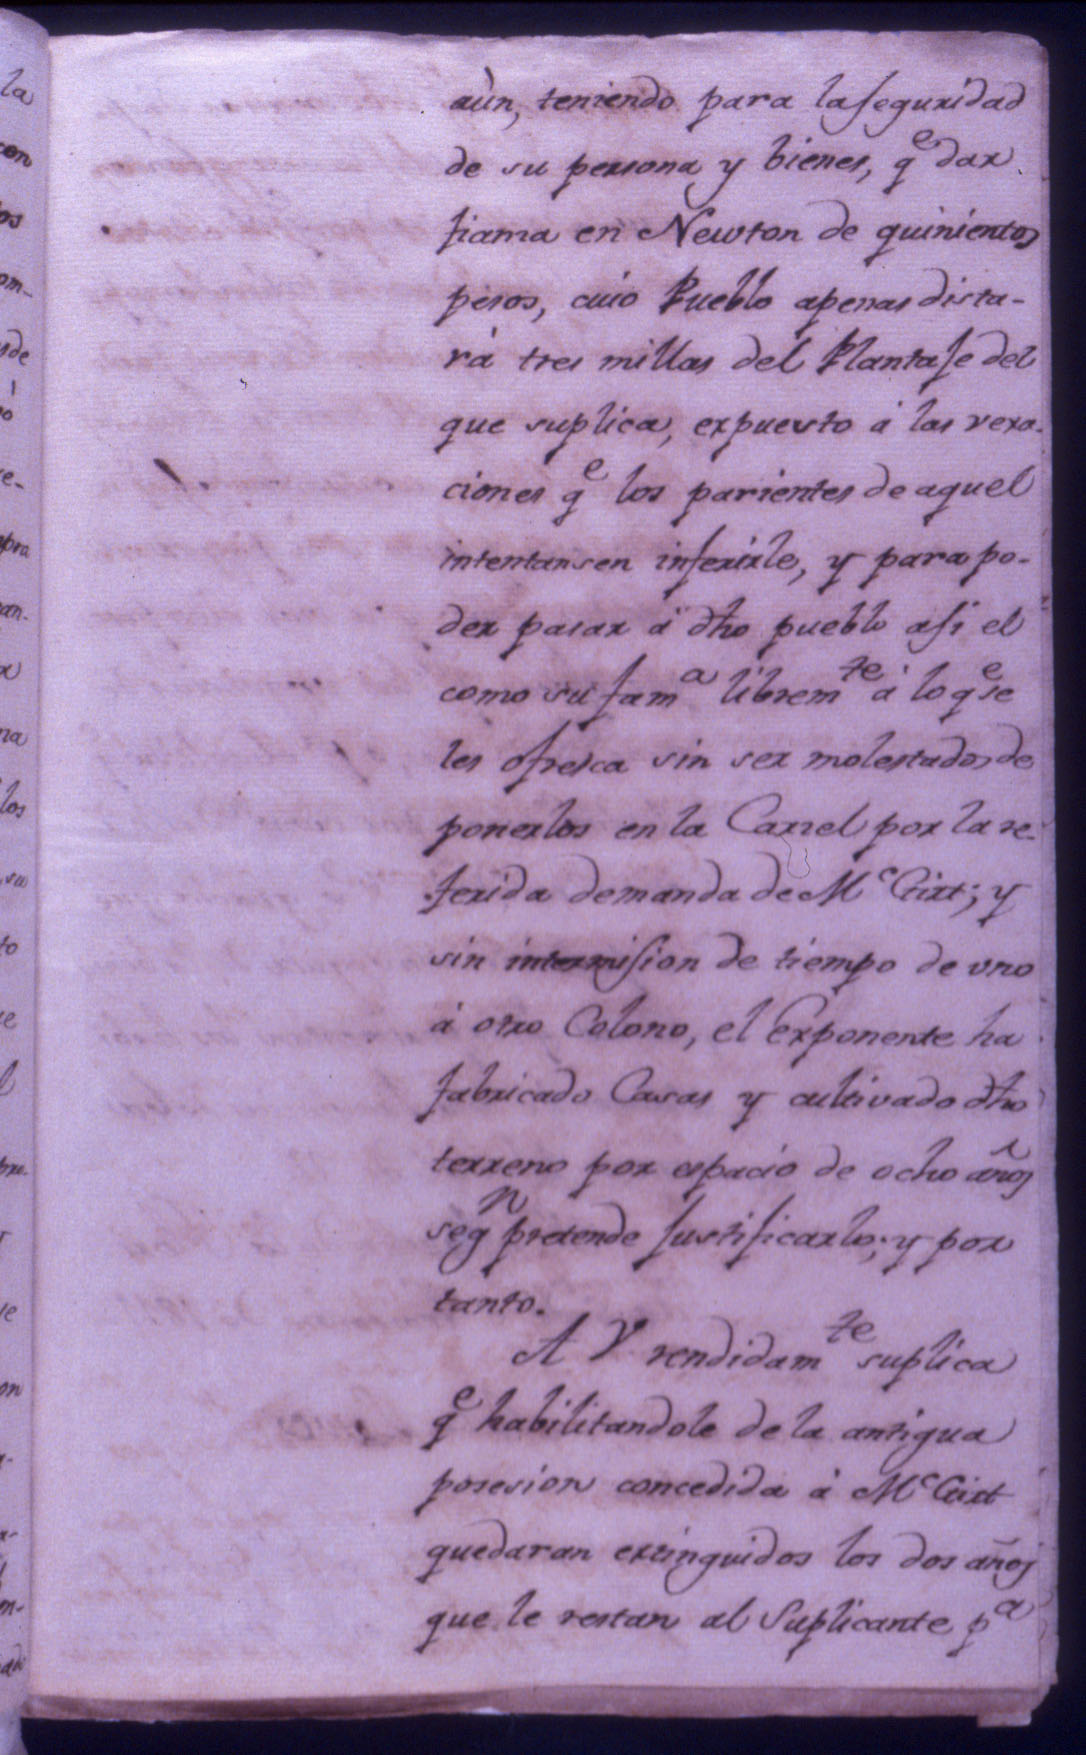 aùn, teniendo para la seguridad
de su persona y bienes, qᵉ dar
fiama en Newton de quinientos
pesos, cuio Pueblo apenas dista-
rá tres millas del Plantase del
que suplica, expuesto á las vexa-
ciones qᵉ los parientes de aquel
intentansen inferirle, y para po-
der pasar á dho pueblo asi el
como su famᵃ libremᵗᵉ á lo qᵉ se
les ofresca sin ser molestados de
ponerlos en la Carzel por la re-
ferida demanda de Mᶜ Girt; y
sin intermision de tiempo de uno
á otro Colono, el Exponente ha
fabricado Casas y cultivado dho
terreno por espacio de ocho años
segⁿ pretende Justificarlo; y por
tanto.
A V. rendidamᵗᵉ suplica
qᵉ habilitandole de la antigua
posesion concedida á Mᶜ Girt
quedaran extinguidos los dos años
que le restan al Suplicante pᵃ